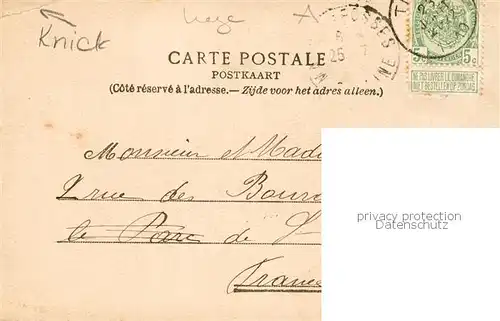 Knick
CARTE POSTALE
POSTKAART
(Côté réservé à l'adresse. — Zijde voor het adres alleen.)
5c 5c
NE PAS LIVRER LE DIMANCHE
NIET BESTELLEN OP ZONDAG
25 7
Monsieur & Mada
rue des Bour
le Parc de S
France
privacy protection
Datenschutz